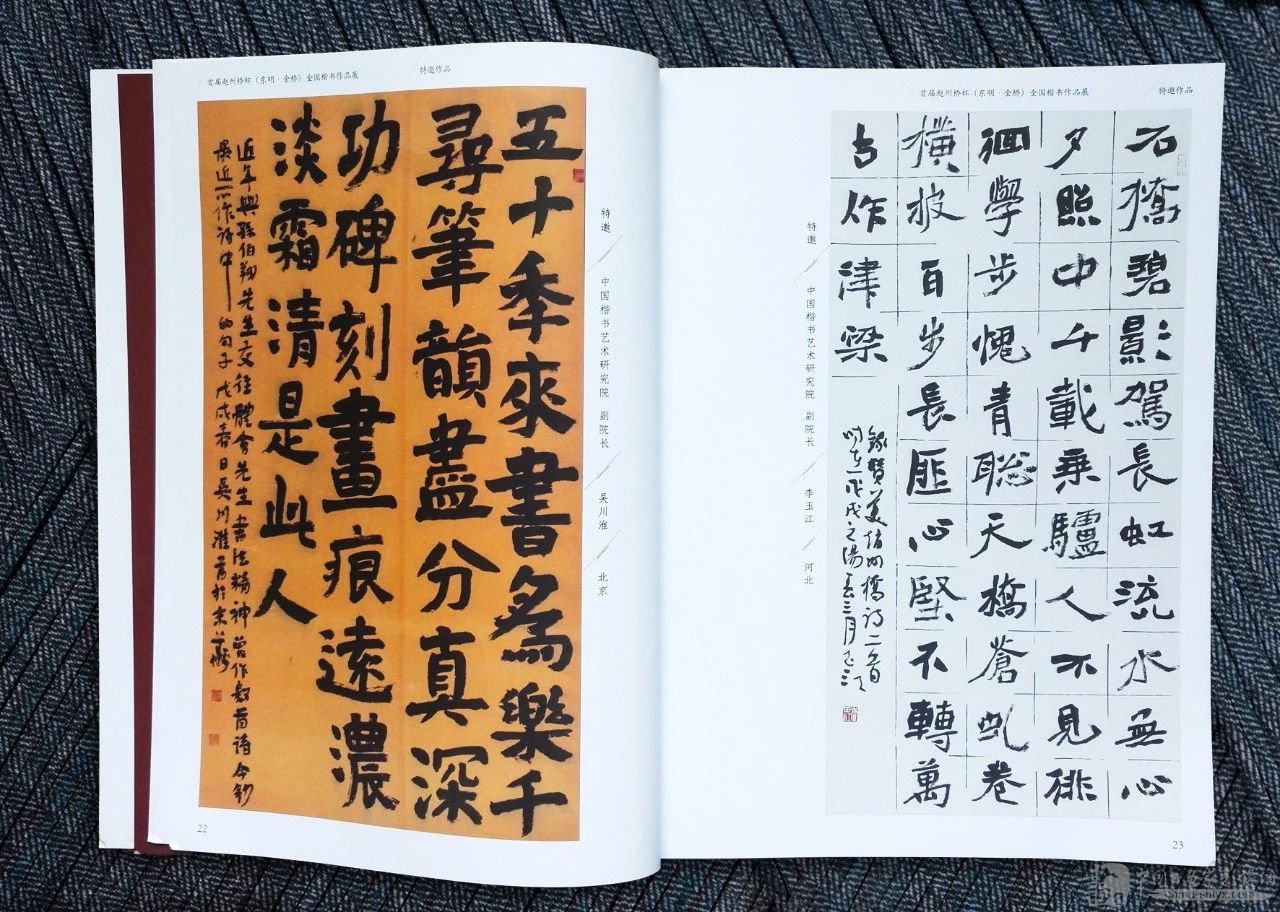 首届赵州桥杯（东明·金桥）全国楷书作品展
特邀作品
五十季來書為樂千
尋筆韻盡分真深
功碑刻畫痕遠濃
淡霜清是此人
近年與孫伯翔先生交往體會先生書法精神曾作數首詩今鈔
最近所作詩中的句子戊戌春日吳川淮書於京
特邀 中国楷书艺术研究院 副院长 吴川淮 北京
22
首届赵州桥杯（东明·金桥）全国楷书作品展
特邀作品
石橋碧影駕長虹流水無心
夕照中千載乗驢人不見徘
徊學步愧青聡天橋蒼虬卷
橫披百步長匪心堅不轉萬
古作津梁
錄贊美趙州橋詩二首
戊戌之陽春三月玉江
特邀 中国楷书艺术研究院 副院长 李玉江 河北
23